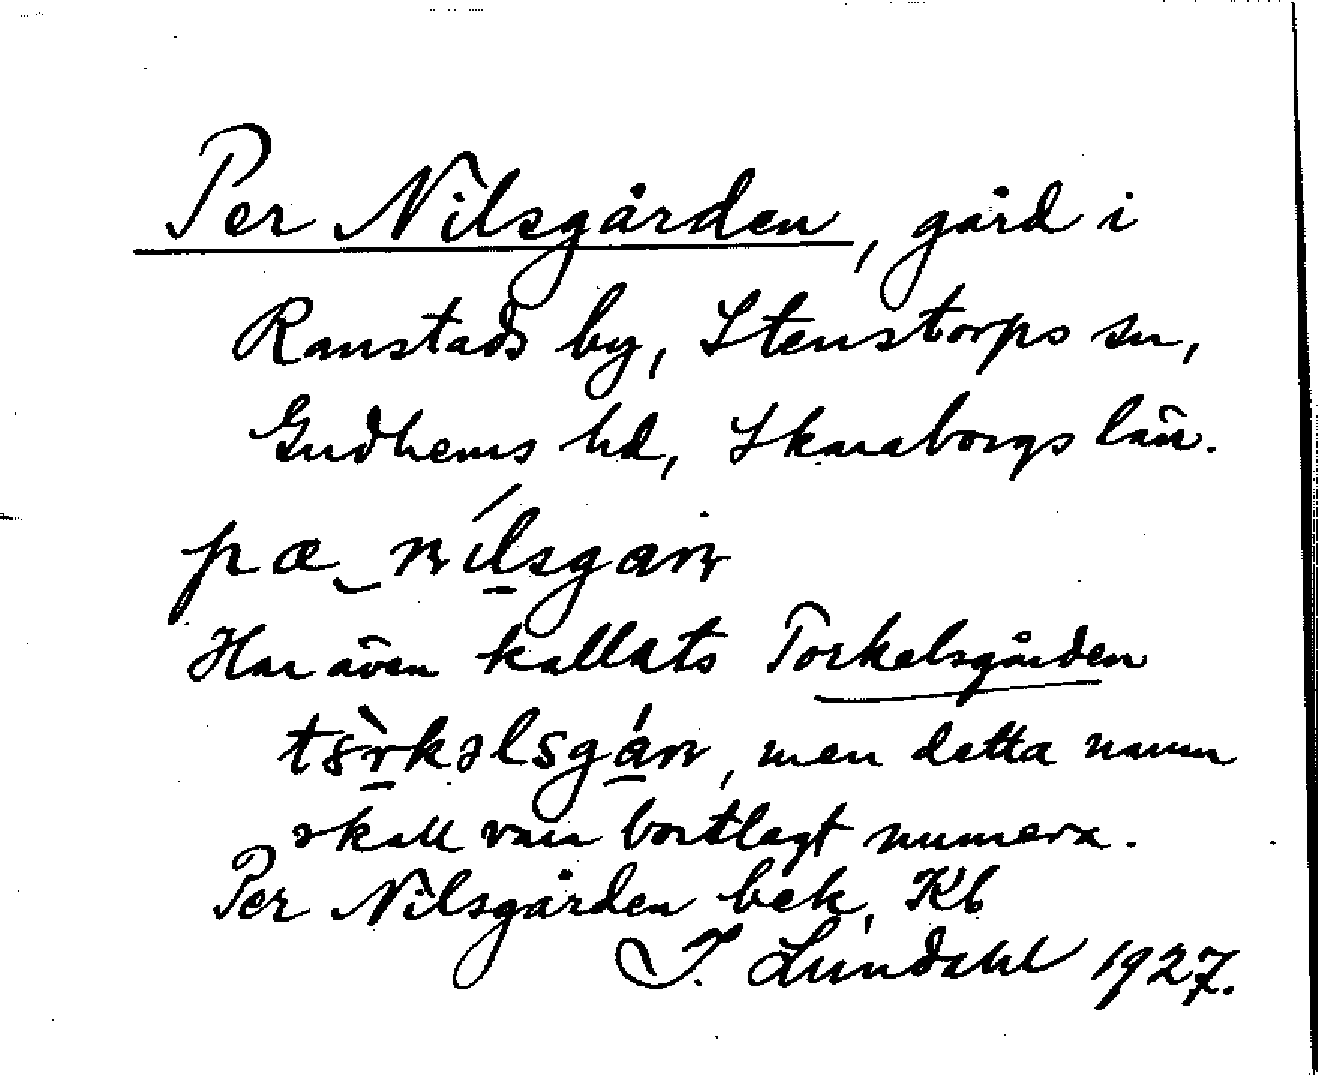 Per Nilsgården, gård i
Ranstads by, Stenstorps sn,
Gudhems hd, Skaraborgs län.
pæ nílsgarn
Har även kallats Torkelsgården
tsr̀kəlsgárn, men detta namn
skall vara bortlagt numera.
Per Nilsgården bek, Kb
I. Lundahl 1927.